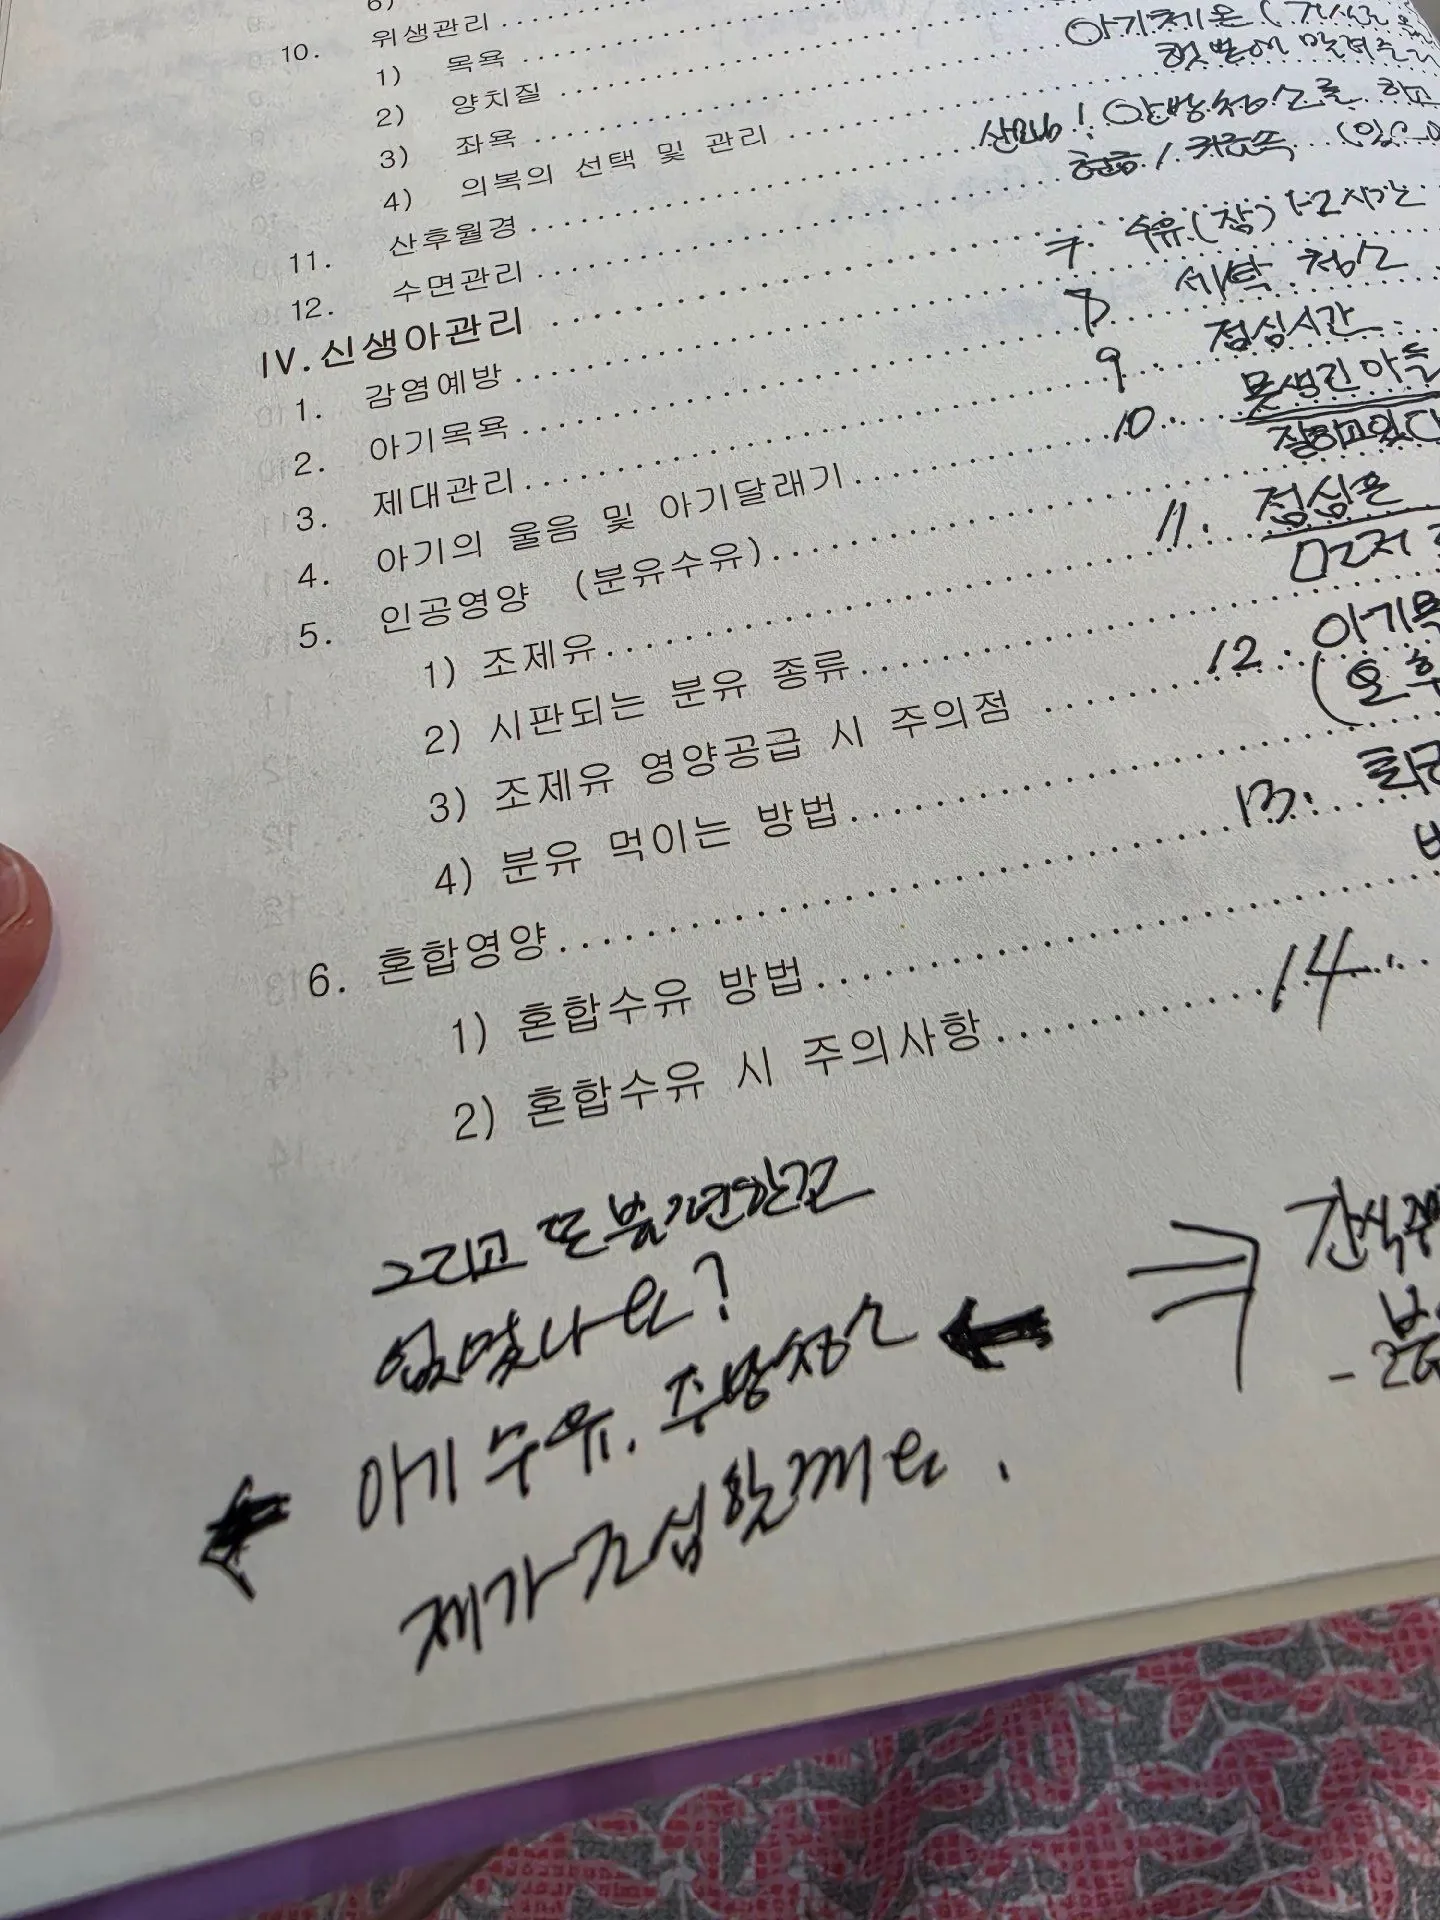 6)
10. 위생관리
1) 목욕
2) 양치질
3) 좌욕
4) 의복의 선택 및 관리
11. 산후월경
12. 수면관리
IV. 신생아관리
1. 감염예방
2. 아기목욕
3. 제대관리
4. 아기의 울음 및 아기달래기
5. 인공영양 (분유수유)
1) 조제유
2) 시판되는 분유 종류
3) 조제유 영양공급 시 주의점
4) 분유 먹이는 방법
6. 혼합영양
1) 혼합수유 방법
2) 혼합수유 시 주의사항
아기체온
산모님! 안방청소를 하고
7. 수유(잠) 1-2시간
8 세탁 청소
9. 점심시간
10. 못생긴 아들
잘하고있다
11. 점심은
먼저
12. 아기목
(오후
13.
14
그리고 또 불편한건
없었나요?
아기 수유. 주방청소
제가 조심할께요.
⇒ 간식